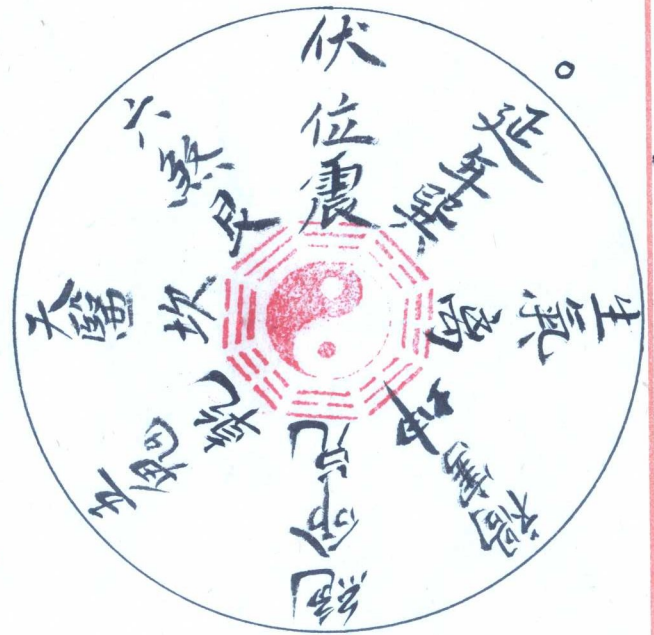 伏位震
延年巽
生氣離
禍害坤
絕命兌
五鬼乾
天醫坎
六煞艮